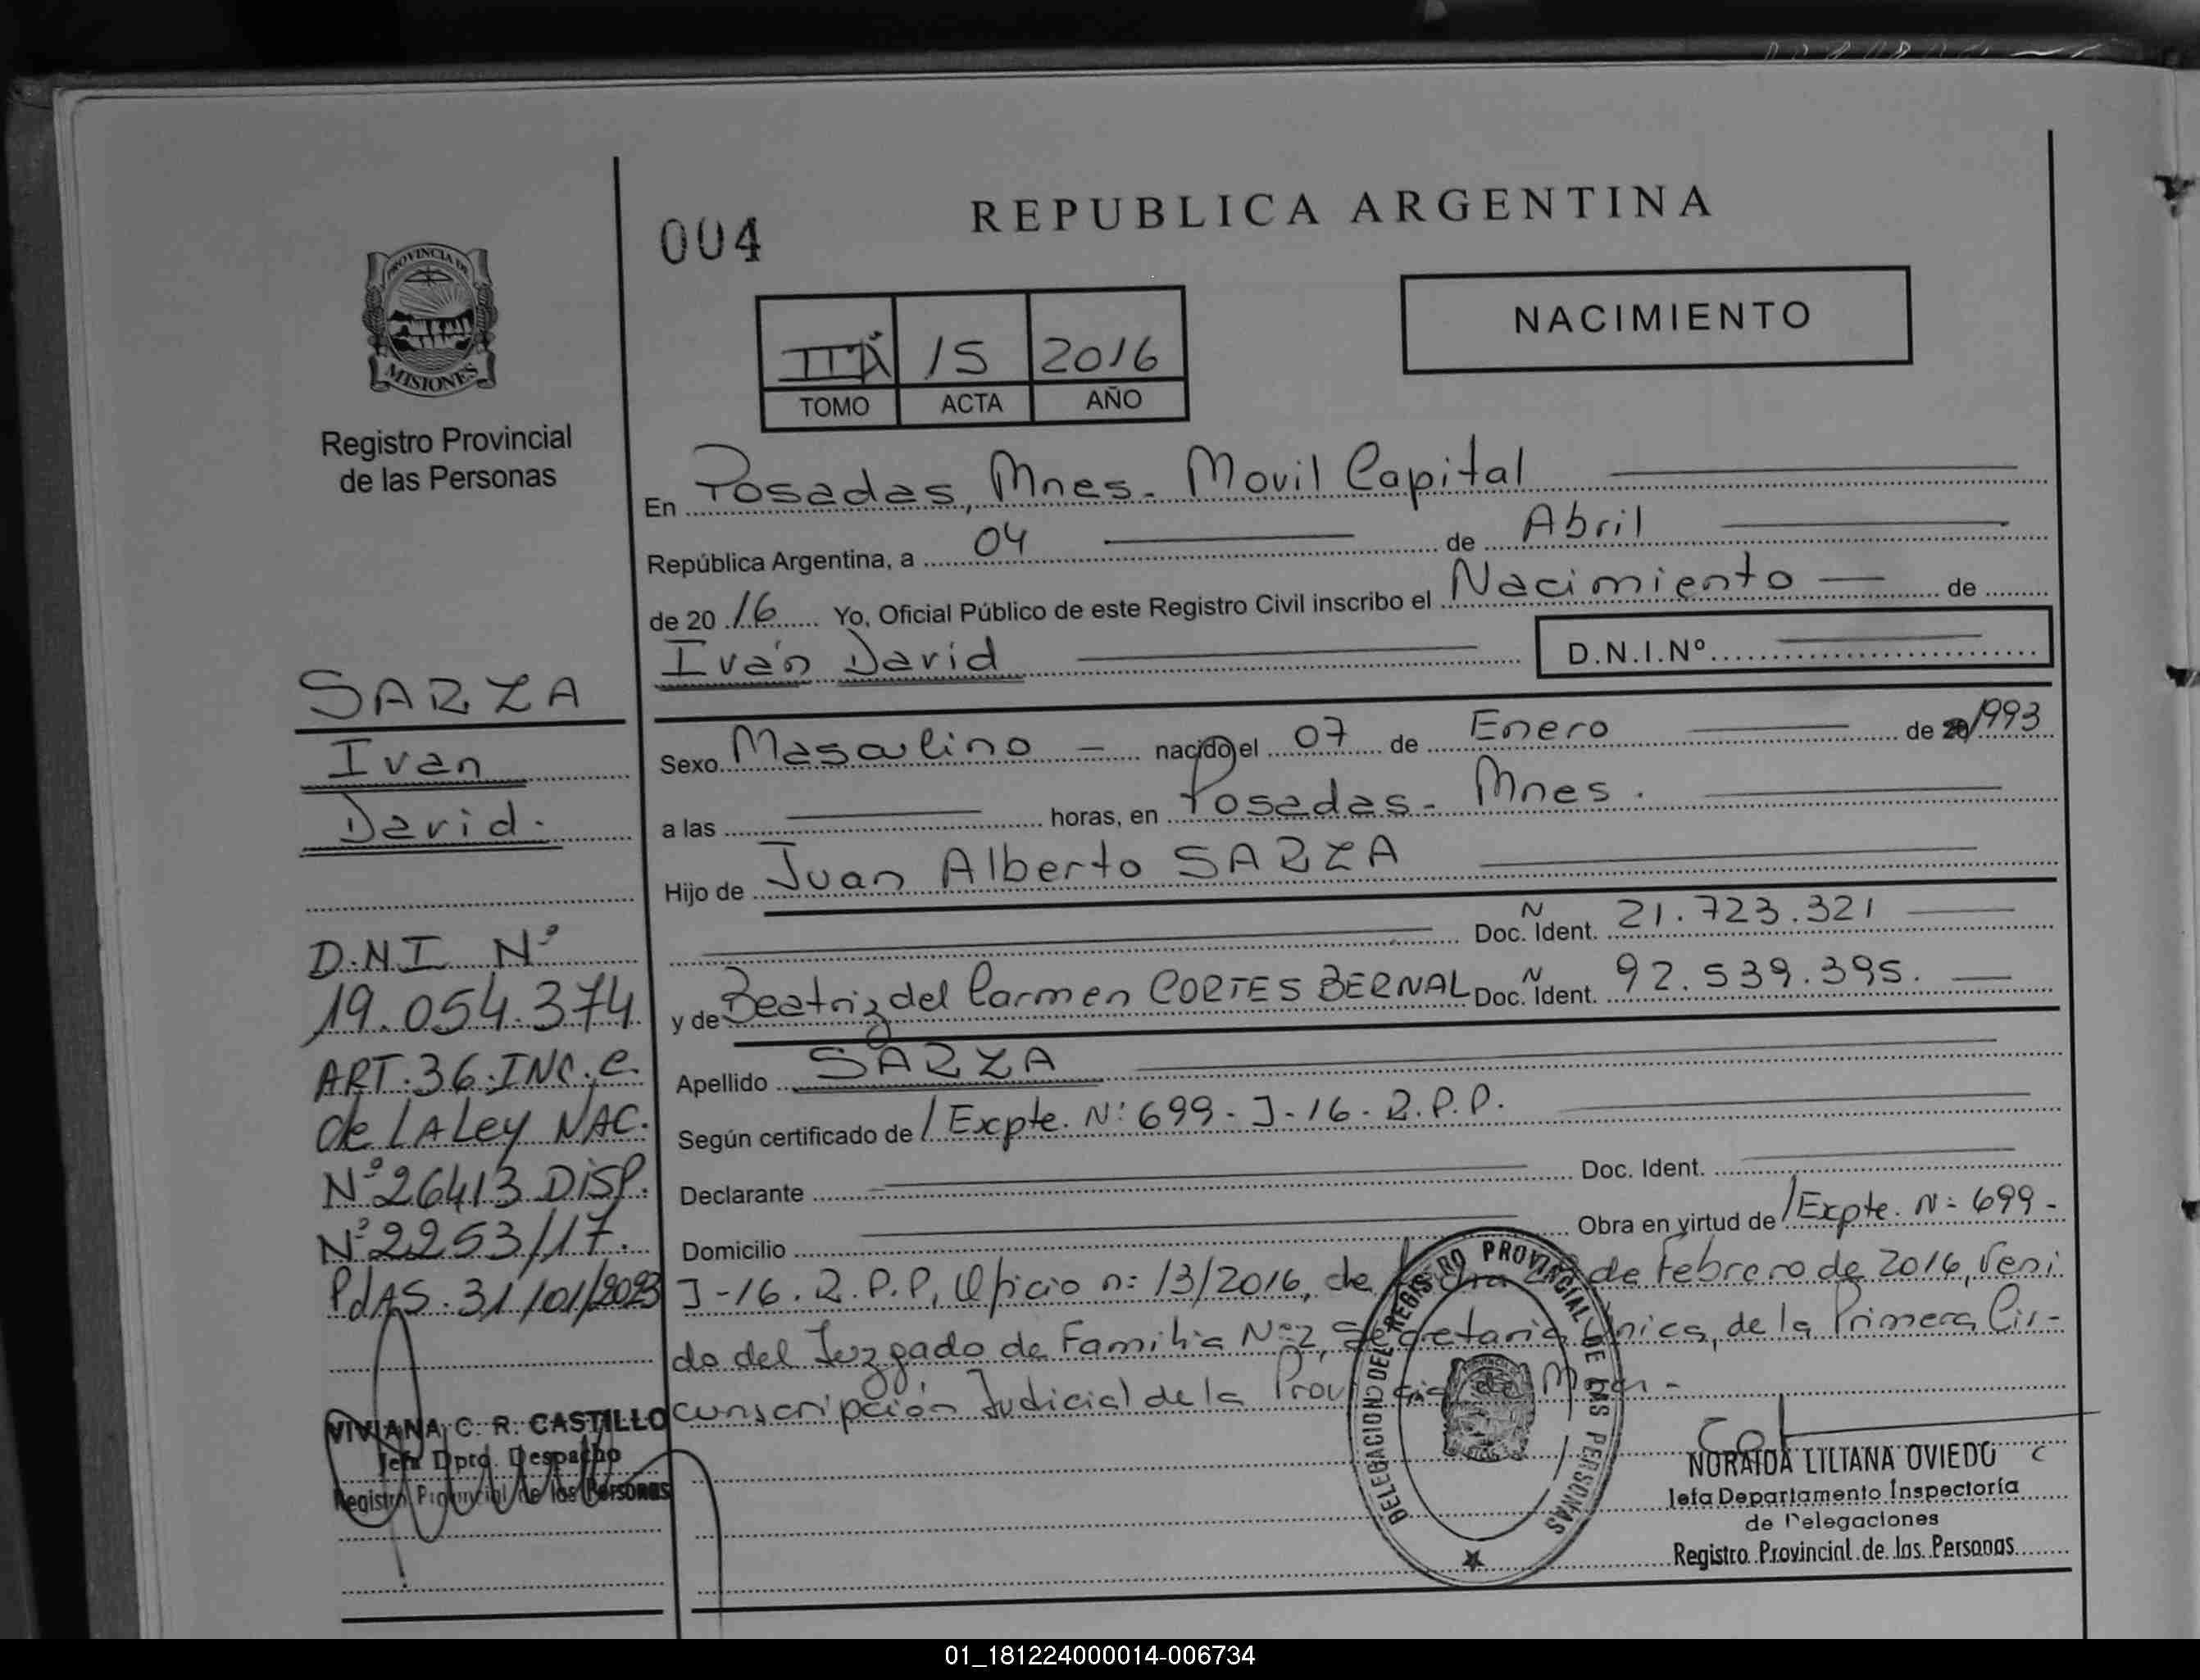 REPUBLICA ARGENTINA
004
NACIMIENTO
15 2016
TOMO ACTA AÑO
PROVINCIA DE
MISIONES
Registro Provincial
de las Personas
En Posadas, Mnes. Movil Capital
República Argentina, a 04 de Abril
de 20 16 Yo, Oficial Público de este Registro Civil inscribo el Nacimiento de
Iván David D.N.I.Nº
Sexo Masculino nacido el 07 de Enero de 1993
a las horas, en Posadas - Mnes.
Hijo de Juan Alberto SARZA
Doc. Ident. 21.723.321
y de Beatriz del Carmen CORTES BERNAL Doc. Ident. 92.539.395.
Apellido SARZA
Según certificado de /Expte. Nº 699-J-16-R.P.P.
Declarante Doc. Ident.
Domicilio Obra en virtud de /Expte. Nº 699-
J-16.R.P.P, Oficio nº 13/2016, de fecha de Febrero de 2016, veni
do del Juzgado de Familia Nº 2, Secretaria Única, de la Primera Cir-
cunscripción Judicial de la Provincia de Mnes.-
SARZA
Ivan
David.
D.N.I Nº
19.054.374
ART.36.INC.e.
de LA Ley NAC.
Nº26413 DISP.
Nº2253/17.
PdAS.31/01/2023
VIVIANA C. R. CASTILLO
Jefa Dpto. Despacho
Registro Provincial de las Personas
DELEGACION DEL REGISTRO PROVINCIAL DE LAS PERSONAS
NORAIDA LILIANA OVIEDO
Jefa Departamento Inspectoría
de Delegaciones
Registro Provincial de las Personas
01_181224000014-006734